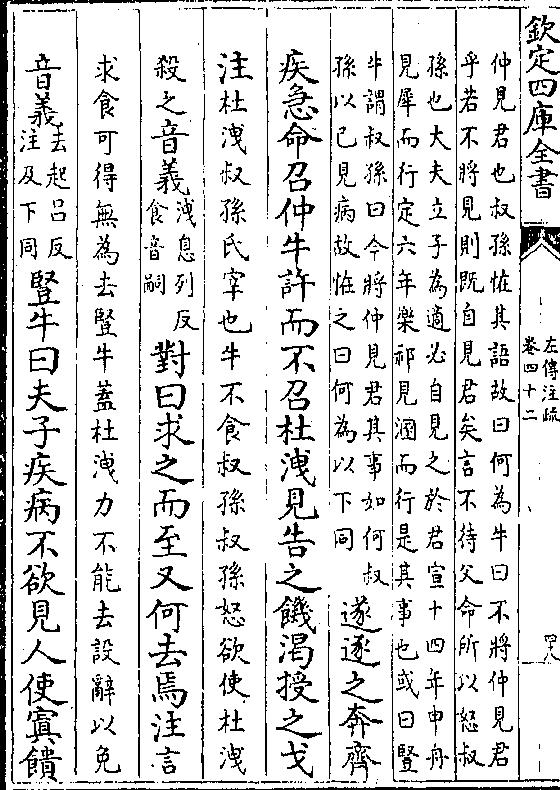 欽定四庫全書
左傳注疏
卷四十二
仲見君也叔孫怪其語故曰何為牛曰不將仲見君
乎若不將見則既自見君矣言不待父命所以怒叔
孫也大夫立子為適必自見之於君宣十四年申舟
見犀而行定六年樂祁見溷而行是其事也或曰豎
牛謂叔孫曰今將仲見君其事如何叔
孫以己見病故怪之曰何為以下同
遂逐之奔齊
疾急命召仲牛許而不召杜洩見告之饑渴授之戈
注杜洩叔孫氏宰也牛不食叔孫叔孫怒欲使杜洩
殺之音義洩息列反
食音嗣
對曰求之而至又何去焉注言
求食可得無為去豎牛蓋杜洩力不能去設辭以免
音義去起呂反
注及下同
豎牛曰夫子疾病不欲見人使寘饋